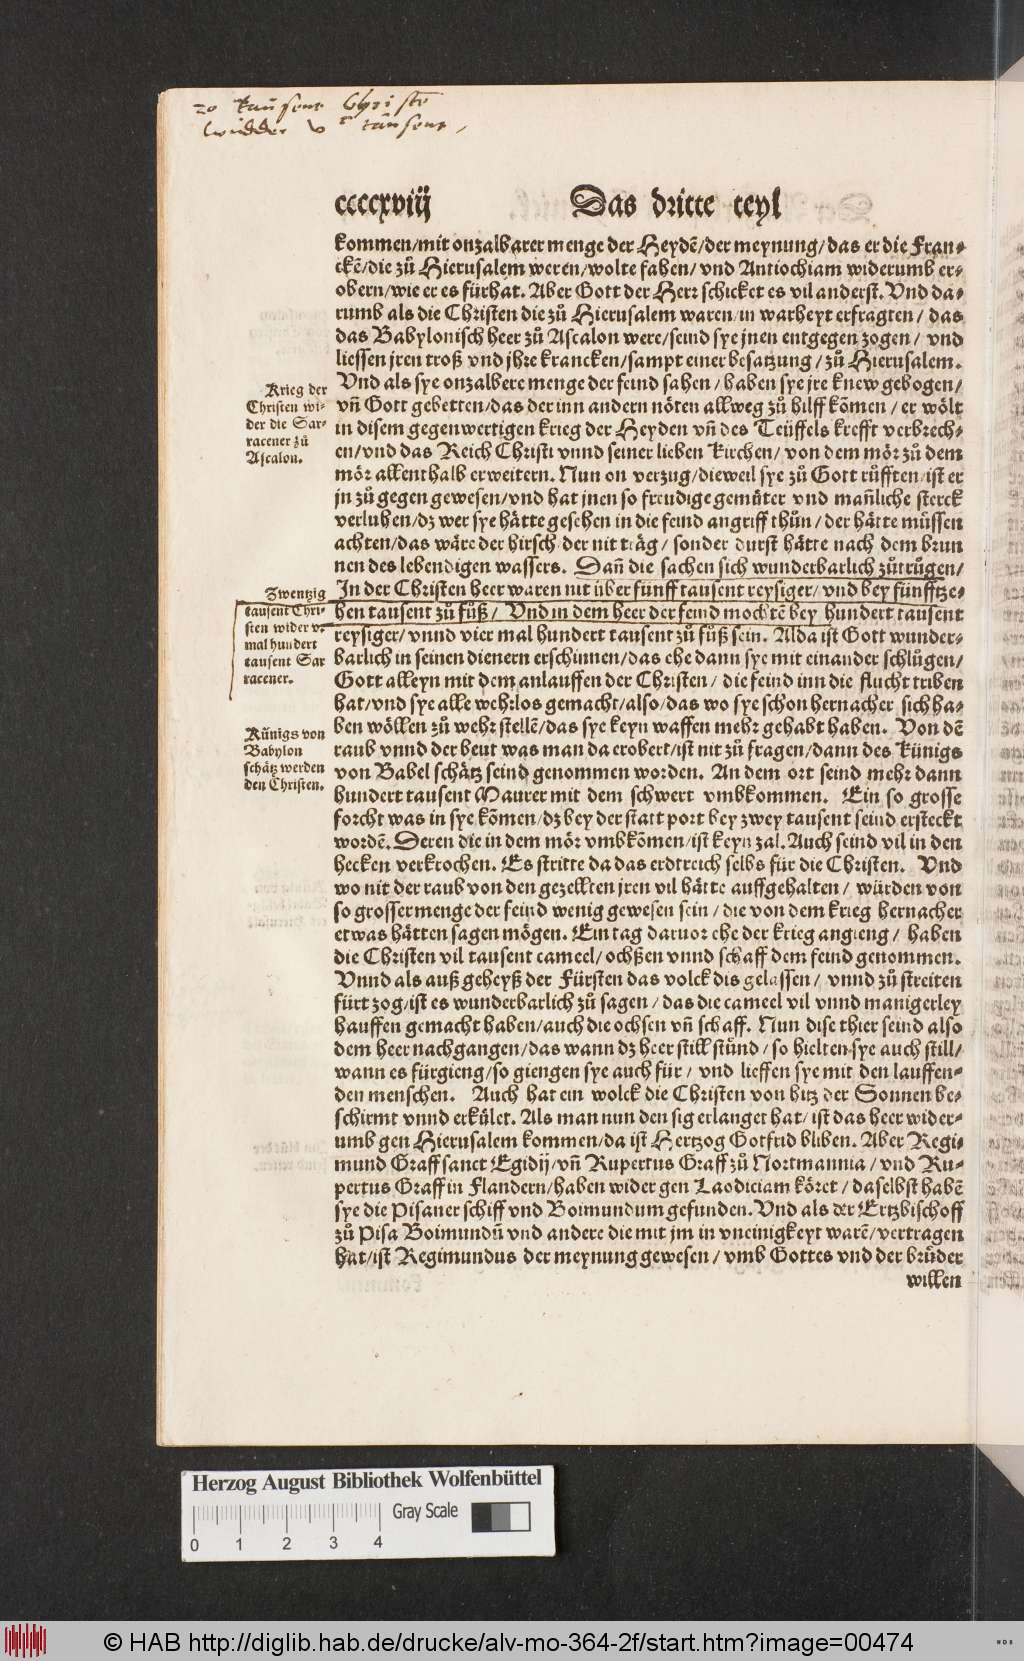 20 tausent Christe
widder v c tausent,
ccccxviij
Das dritte teyl
kommen/mit onzalbarer menge der Heydẽ/der meynung/das er die Fran⸗
ckẽ/die zů Hierusalem weren/wolte fahen/vnd Antiochiam widerumb er⸗
obern/wie er es fürhat. Aber Gott der Herr schicket es vil anderst. Vnd da⸗
rumb als die Christen die zů Hierusalem waren/in warheyt erfragten/das
das Babylonisch heer zů Ascalon were/seind sye jnen entgegen zogen/vnd
liessen jren troß vnd jhre krancken/sampt einer besatzung/zů Hierusalem.
Vnd als sye onzalbere menge der feind sahen/haben sye jre knew gebogen/
vñ Gott gebetten/das der inn andern nöten allweg zů hilff kõmen/er wölt
in disem gegenwertigen krieg der Heyden vñ des Teüffels krefft verbrech⸗
en/vnd das Reich Christi vnnd seiner lieben Kirchen/von dem mör zů dem
mör allenthalb erweitern. Nun on verzug/dieweil sye zů Gott růfften/ist er
jn zů gegen gewesen/vnd hat jnen so freudige gemüter vnd mañliche sterck
verluhen/dz wer sye hätte gesehen in die feind angriff thůn/der hätte müssen
achten/das wäre der hirsch der nit träg/sonder durst hätte nach dem brun
nen des lebendigen wassers. Dañ die sachen sich wunderbarlich zůtrůgen/
In der Christen heer waren nit über fünff tausent reysiger/vnd bey fünfftze⸗
hen tausent zů fůß/Vnd in dem heer der feind mochtẽ bey hundert tausent
reysiger/vnnd vier mal hundert tausent zů fůß sein. Alda ist Gott wunder⸗
barlich in seinen dienern erschinnen/das ehe dann sye mit einander schlůgen/
Gott alleyn mit dem anlauffen der Christen/die feind inn die flucht triben
hat/vnd sye alle wehrlos gemacht/also/das wo sye schon hernacher sich ha⸗
ben wöllen zů wehr stellẽ/das sye keyn waffen mehr gehabt haben. Von dẽ
raub vnnd der beut was man da erobert/ist nit zů fragen/dann des Künigs
von Babel schätz seind genommen worden. An dem ort seind mehr dann
hundert tausent Maurer mit dem schwert vmbkommen. Ein so grosse
forcht was in sye kõmen/dz bey der statt port bey zwey tausent seind ersteckt
wordẽ. Deren die in dem mör vmbkõmen/ist keyn zal. Auch seind vil in den
hecken verkrochen. Es stritte da das erdtreich selbs für die Christen. Vnd
wo nit der raub von den gezellten jren vil hätte auffgehalten/würden von
so grosser menge der feind wenig gewesen sein/die von dem krieg hernacher
etwas hätten sagen mögen. Ein tag daruor ehe der krieg angieng/haben
die Christen vil tausent cameel/ochßen vnnd schaff dem feind genommen.
Vnnd als auß geheyß der Fürsten das volck dis gelassen/vnnd zů streiten
fürt zog/ist es wunderbarlich zů sagen/das die cameel vil vnnd manigerley
hauffen gemacht haben/auch die ochsen vñ schaff. Nun dise thier seind also
dem heer nachgangen/das wann dz heer still stůnd/so hielten sye auch still/
wann es fürgieng/so giengen sye auch für/vnd lieffen sye mit den lauffen⸗
den menschen. Auch hat ein wolck die Christen von hitz der Sonnen be⸗
schirmt vnnd erkület. Als man nun den sig erlanget hat/ist das heer wider⸗
umb gen Hierusalem kommen/da ist Hertzog Gotfrid bliben. Aber Regi⸗
mund Graff sanct Egidij/vñ Rupertus Graff zů Nortmannia/vnd Ru⸗
pertus Graff in Flandern/haben wider gen Laodiciam köret/daselbst habẽ
sye die Pisaner schiff vnd Boimundum gefunden. Vnd als der Ertzbischoff
zů Pisa Boimundũ vnd andere die mit jm in vneinigkeyt warẽ/vertragen
hat/ist Regimundus der meynung gewesen/vmb Gottes vnd der brüder
willen
Krieg der
Christen wi⸗
der die Sar⸗
racener zů
Ascalon.
Zwentzig
tausent Chri⸗
sten wider v.
mal hundert
tausent Sar
racener.
Künigs von
Babylon
schätz werden
den Christen.
Herzog August Bibliothek Wolfenbüttel
Gray Scale
0 1 2 3 4
© HAB http://diglib.hab.de/drucke/alv-mo-364-2f/start.htm?image=00474